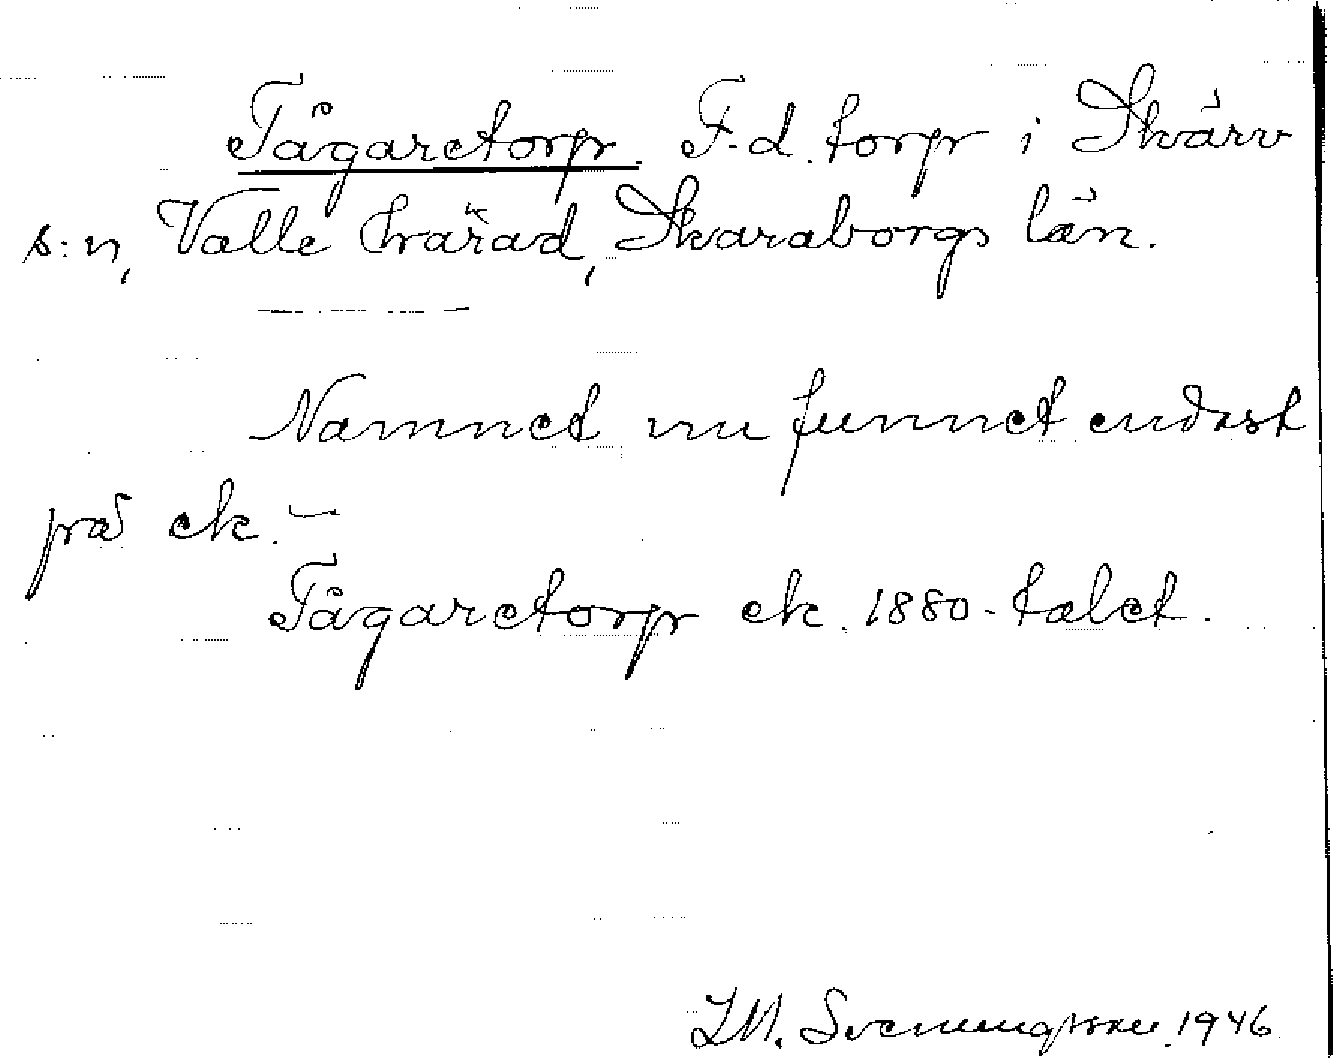 Tågaretorp. F.d. torp i Skärv
s:n, Valle härad, Skaraborgs län.
Namnet nu funnet endast
på ek. –
Tågaretorp ek. 1880-talet.
I.M. Svenungsson 1946